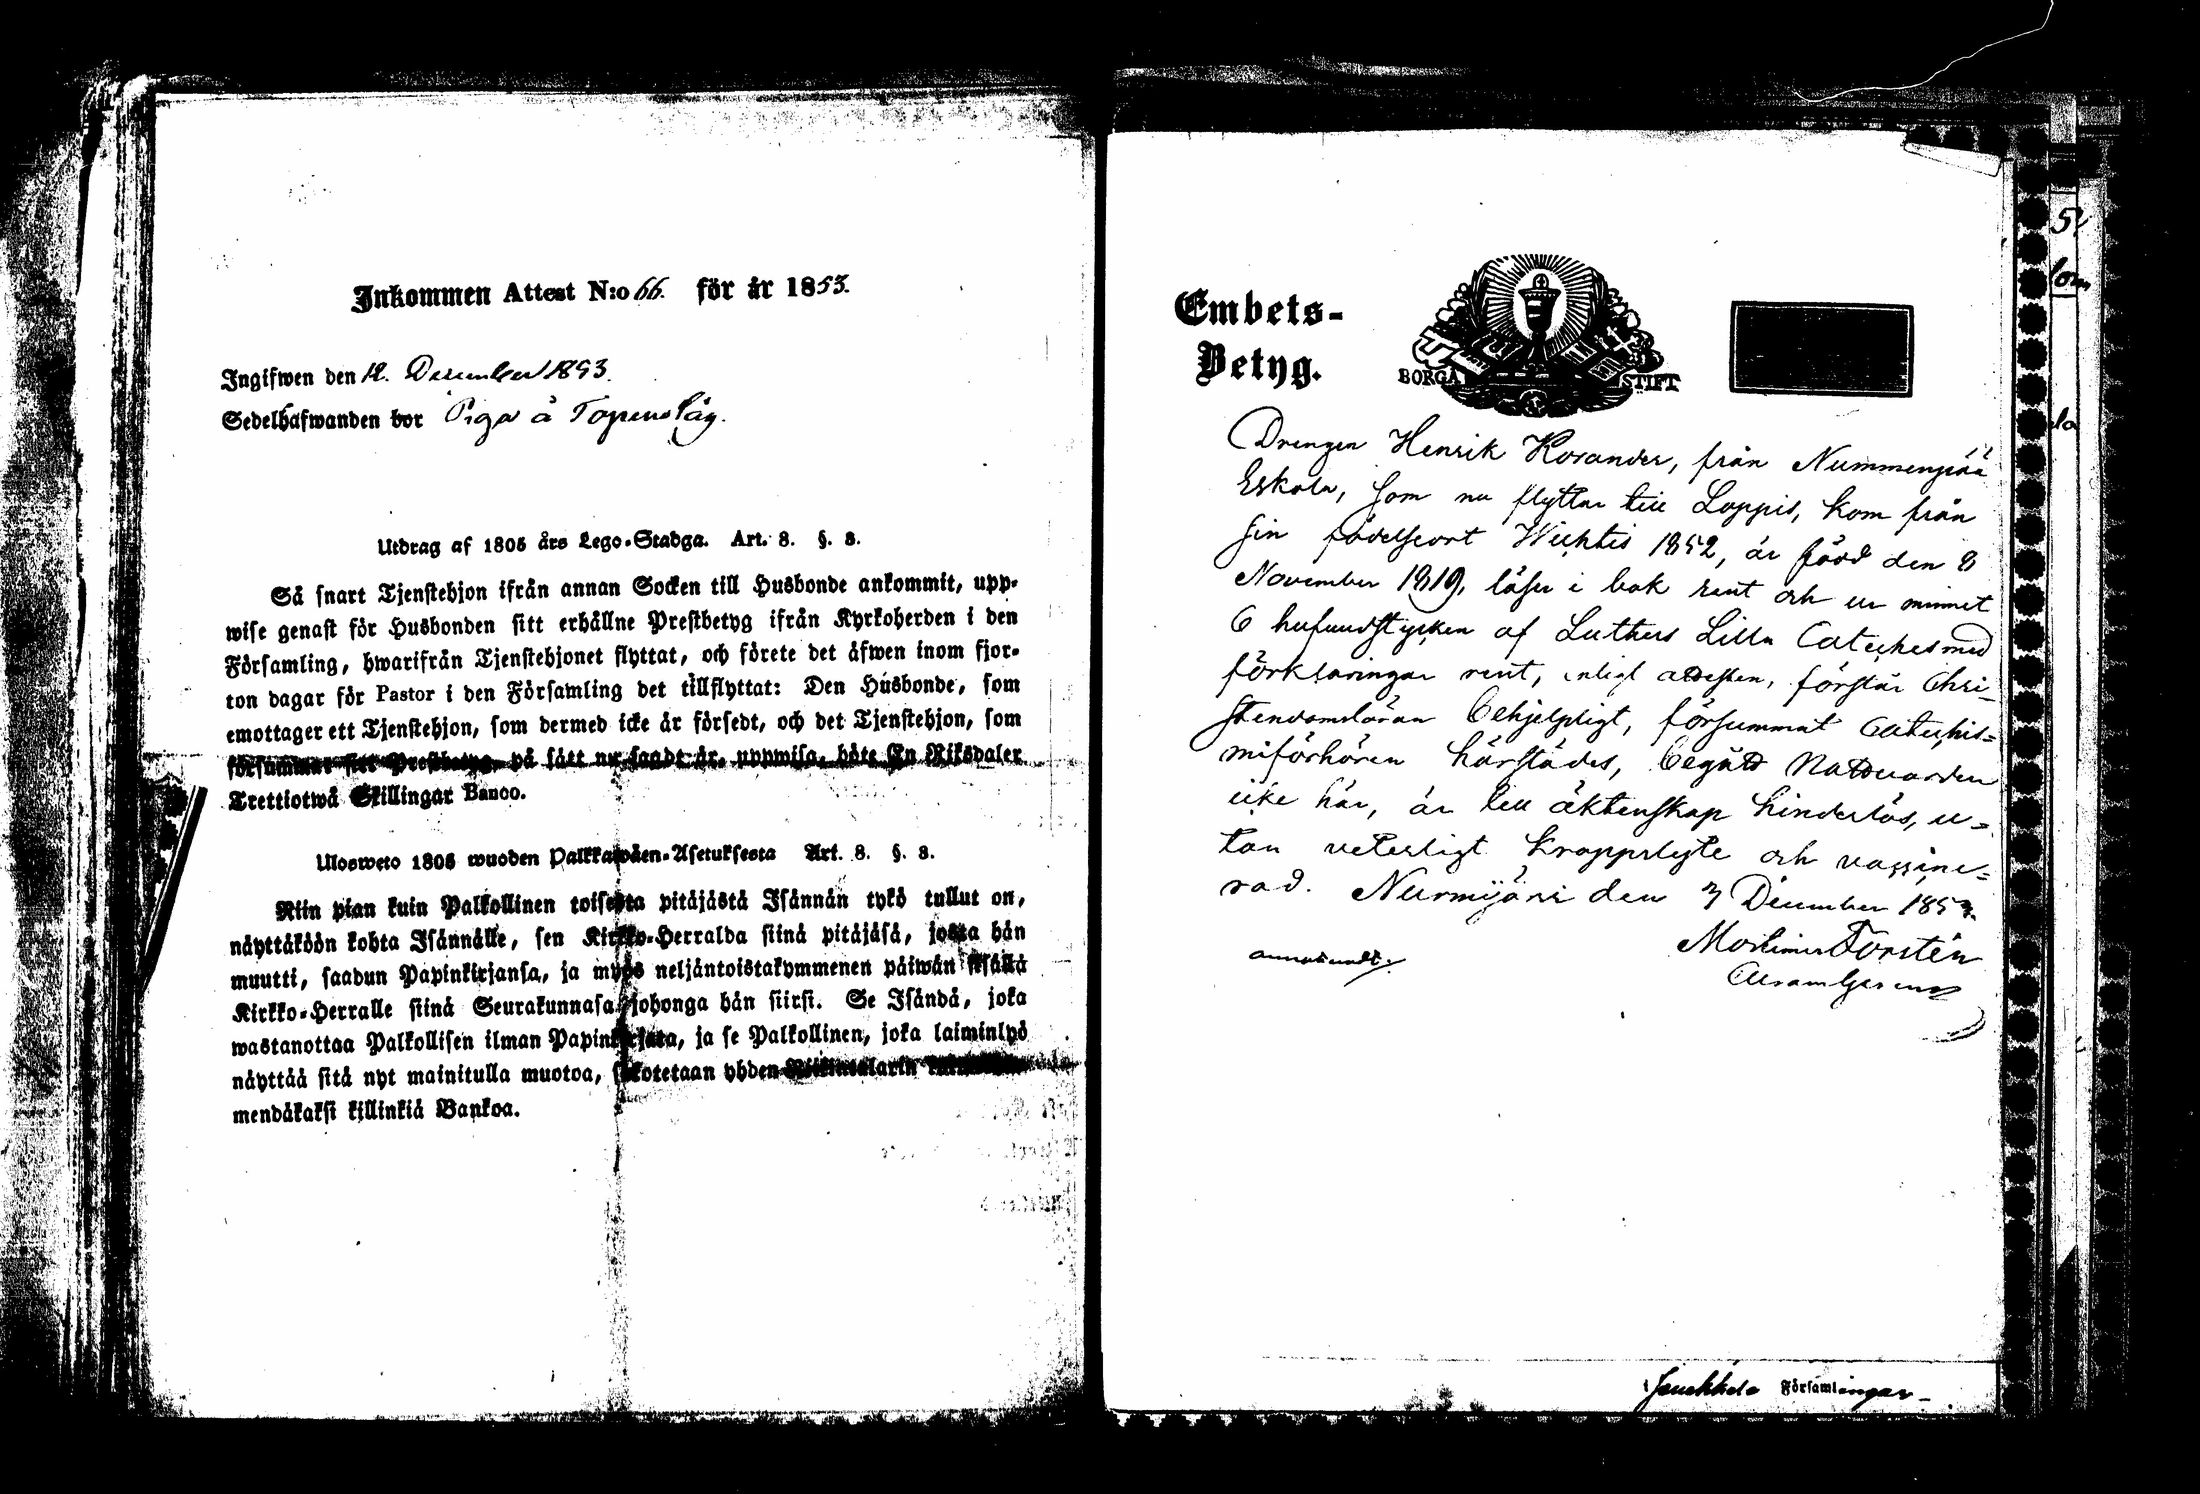 Inkommen Attest N:o 66. för år 1853.
Ingifwen den 12. December 1853.
Sedelhafwanden bor Piga å Topeno
Utdrag af 1805 års Lego-Stadga. Art. 8. §. 3.
Så snart Tjenstehjon ifrån annan Socken till Husbonde ankommit, upp-
wise genast för Husbonden sitt erhållne Prestbetyg ifrån Kyrkoherden i den
Församling, hwarifrån Tjenstehjonet flyttat, och förete det äfwen inom fjor-
ton dagar för Pastor i den Församling det tillflyttat: Den Husbonde, som
emottager ett Tjenstehjon, som dermed icke är försedt, och det Tjenstehjon, som
försummar sitt Prestbetyg, på sätt nu sagdt är, uppwisa, böte En Riksdaler
Trettiotwå Skillingar Banco.
Ulosweto 1805 wuoden Palkkawäen-Asetuksesta Art. 8. §. 3.
Niin pian kuin Palkollinen toisesta pitäjästä Isännän tykö tullut on,
näyttäköön kohta Isännälle, sen Kirkko-Herralda siinä pitäjäsä, josta hän
muutti, saadun Papinkirjansa, ja myös neljäntoistakymmenen päiwän sisällä
Kirkko-Herralle siinä Seurakunnasa johonga hän siirsi. Se Isändä, joka
wastanottaa Palkollisen ilman Papinkirjata, ja se Palkollinen, joka laiminlyö
näyttää sitä nyt mainitulla muotoa, sakotetaan yhden Riikintalarin
mendäkaksi killinkiä Bankoa.
Embets-
Betyg.
BORGÅ STIFT
Drengen Henrik Rosander, från Nummenpää
Eskola, som nu flyttar till Loppis, kom från
sin födelseort Wichtis 1852, är född den 8
November 1819, läser i bok rent och ur minnet
6 hufvudstycken af Luthers Lilla Cateches med
förklaringar rent, enligt attesten, förstår Chri-
stendomsläran behjelpligt, försummat Catechis-
miförhören härstädes, begått Nattvarden
icke här, är till äktenskap hinderlös, u-
tan veterligt kroppslyte och vaccine-
rad. Nurmijärvi den 7 December 1853.
Mortimer Forstén
annoteradt.
Janakkala Församlingar